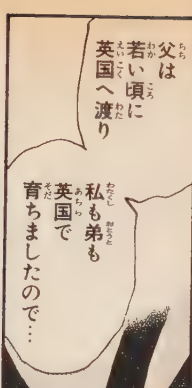 父は
若い頃に
英国へ渡り
私も弟も
英国で
育ちましたので…